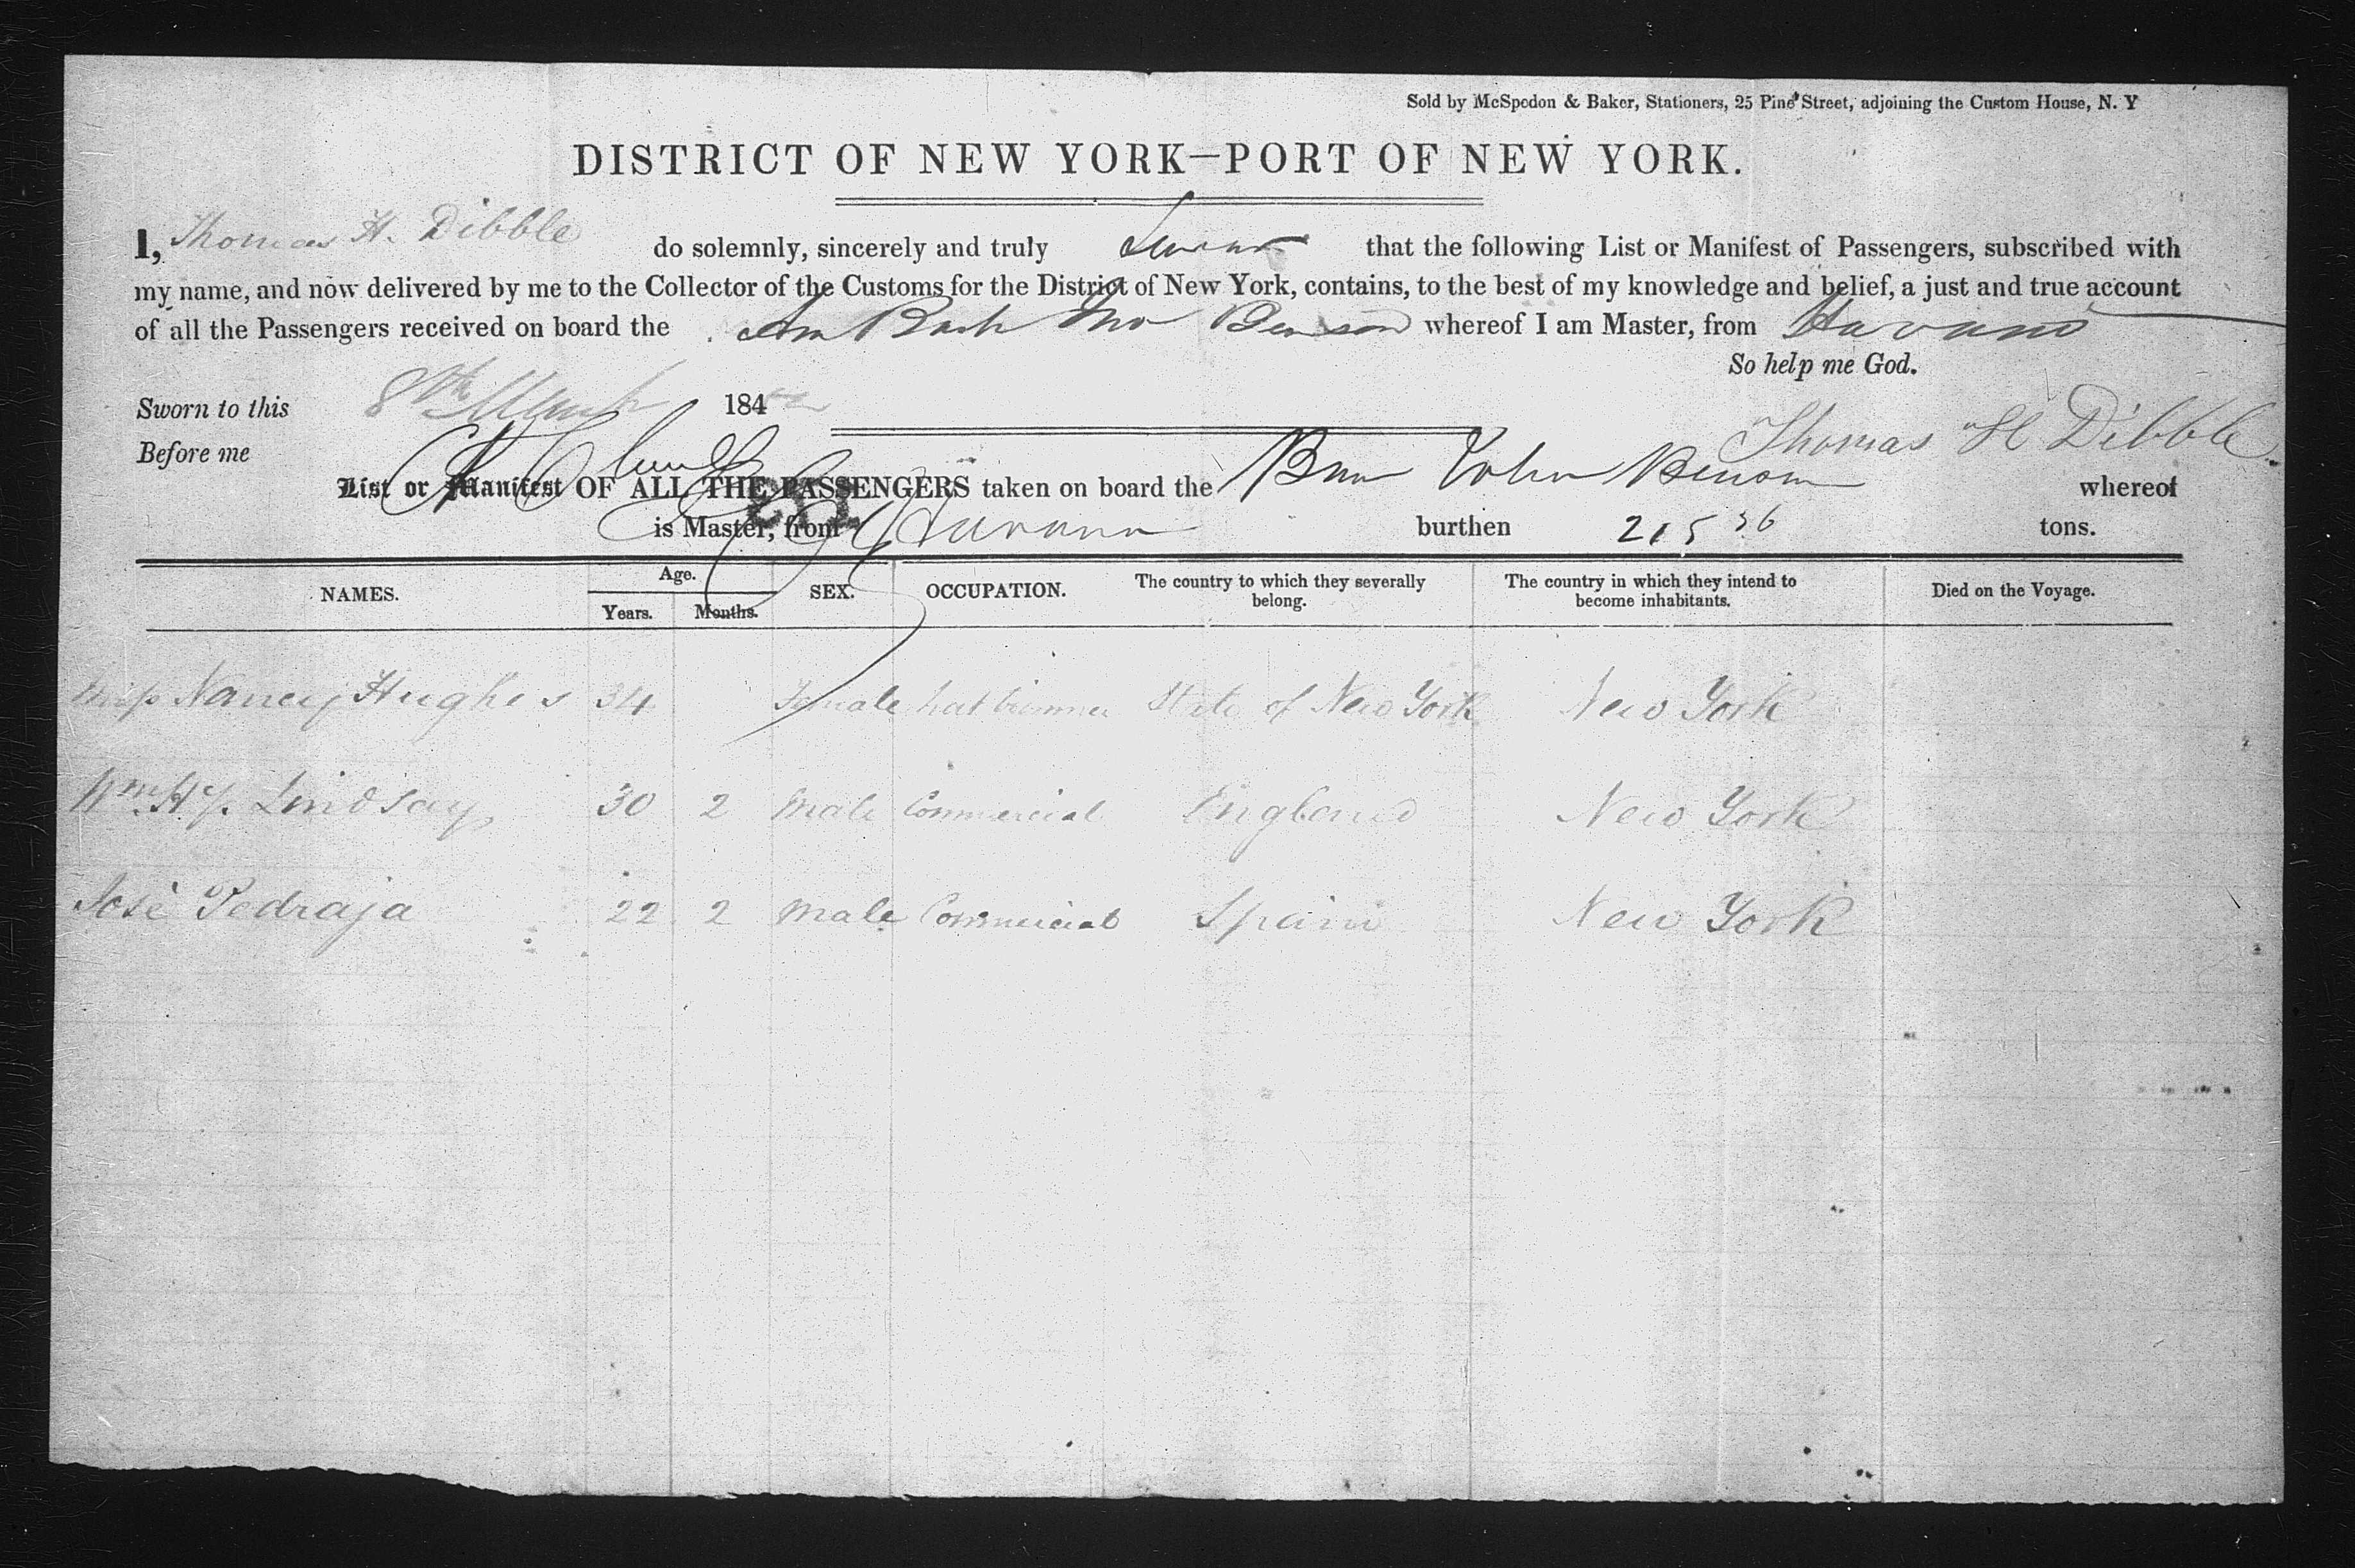 Sold by McSpedon & Baker, Stationers, 25 Pine Street, adjoining the Custom House, N. Y
DISTRICT OF NEW YORK—PORT OF NEW YORK.
I, Thomas H. Dibble do solemnly, sincerely and truly Swear that the following List or Manifest of Passengers, subscribed with
my name, and now delivered by me to the Collector of the Customs for the District of New York, contains, to the best of my knowledge and belief, a just and true account
of all the Passengers received on board the Am Bark Jno Benson whereof I am Master, from Havana
So help me God.
Sworn to this 8th March 184
Before me Thomas H Dibble
List or Manifest OF ALL THE PASSENGERS taken on board the John Benson whereof
is Master, from Havana burthen 215 36 tons.
NAMES. Age. SEX. OCCUPATION. The country to which they severally belong. The country in which they intend to become inhabitants. Died on the Voyage.
Years. Months.
Miss Nancy Hughes 34 Female hat trimmer State of New York New York
Wm. Hy. Lindsay 30 2 Male Commercial England New York
José Pedraja 22 2 Male Commercial Spain New York